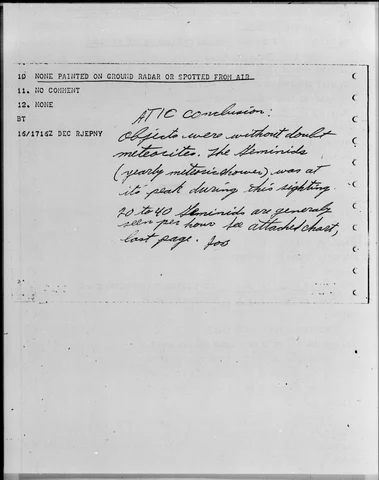 10 NONE PAINTED ON GROUND RADAR OR SPOTTED FROM AIR
11. NO COMMENT
12. NONE
BT
16/1716Z DEC RJEPNY
ATIC conclusion:
Objects were without doubt
meteorites. The Geminids
(yearly meteoric shower) was at
its peak during this sighting.
20 to 40 Geminids are generally
seen per hour See attached chart,
last page.